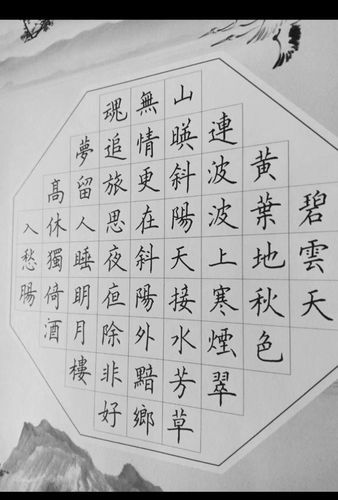 碧雲天
黄葉地秋色
連波波上寒煙翠
山暎斜陽天接水芳草
無情更在斜陽外黯鄉
魂追旅思夜亱除非好
夢留人睡明月樓
髙休獨倚酒
入愁腸